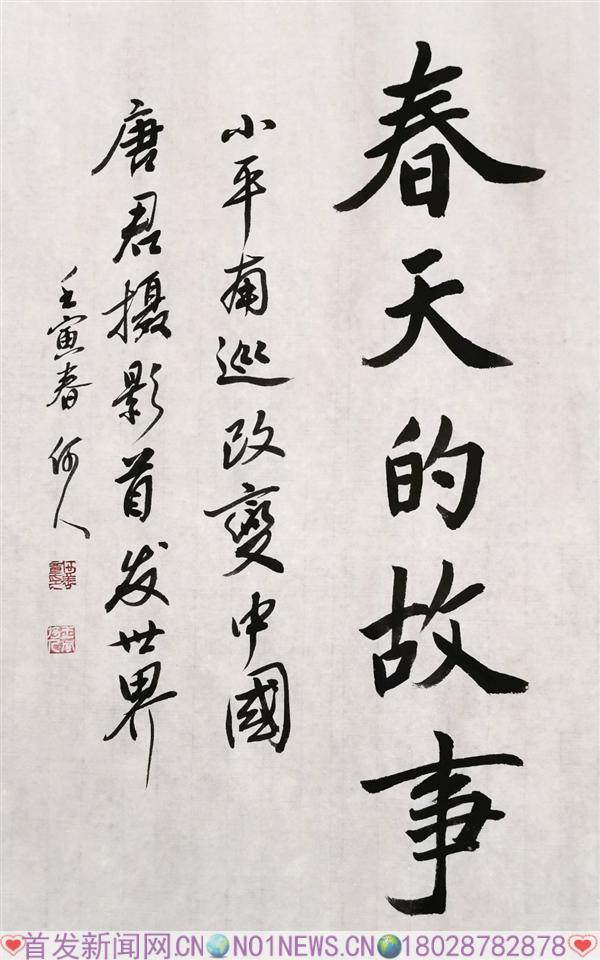 春天的故事
小平南巡改變中國
唐君摄影首发世界
壬寅春何人
首发新闻网.CN NO1NEWS.CN 18028782878